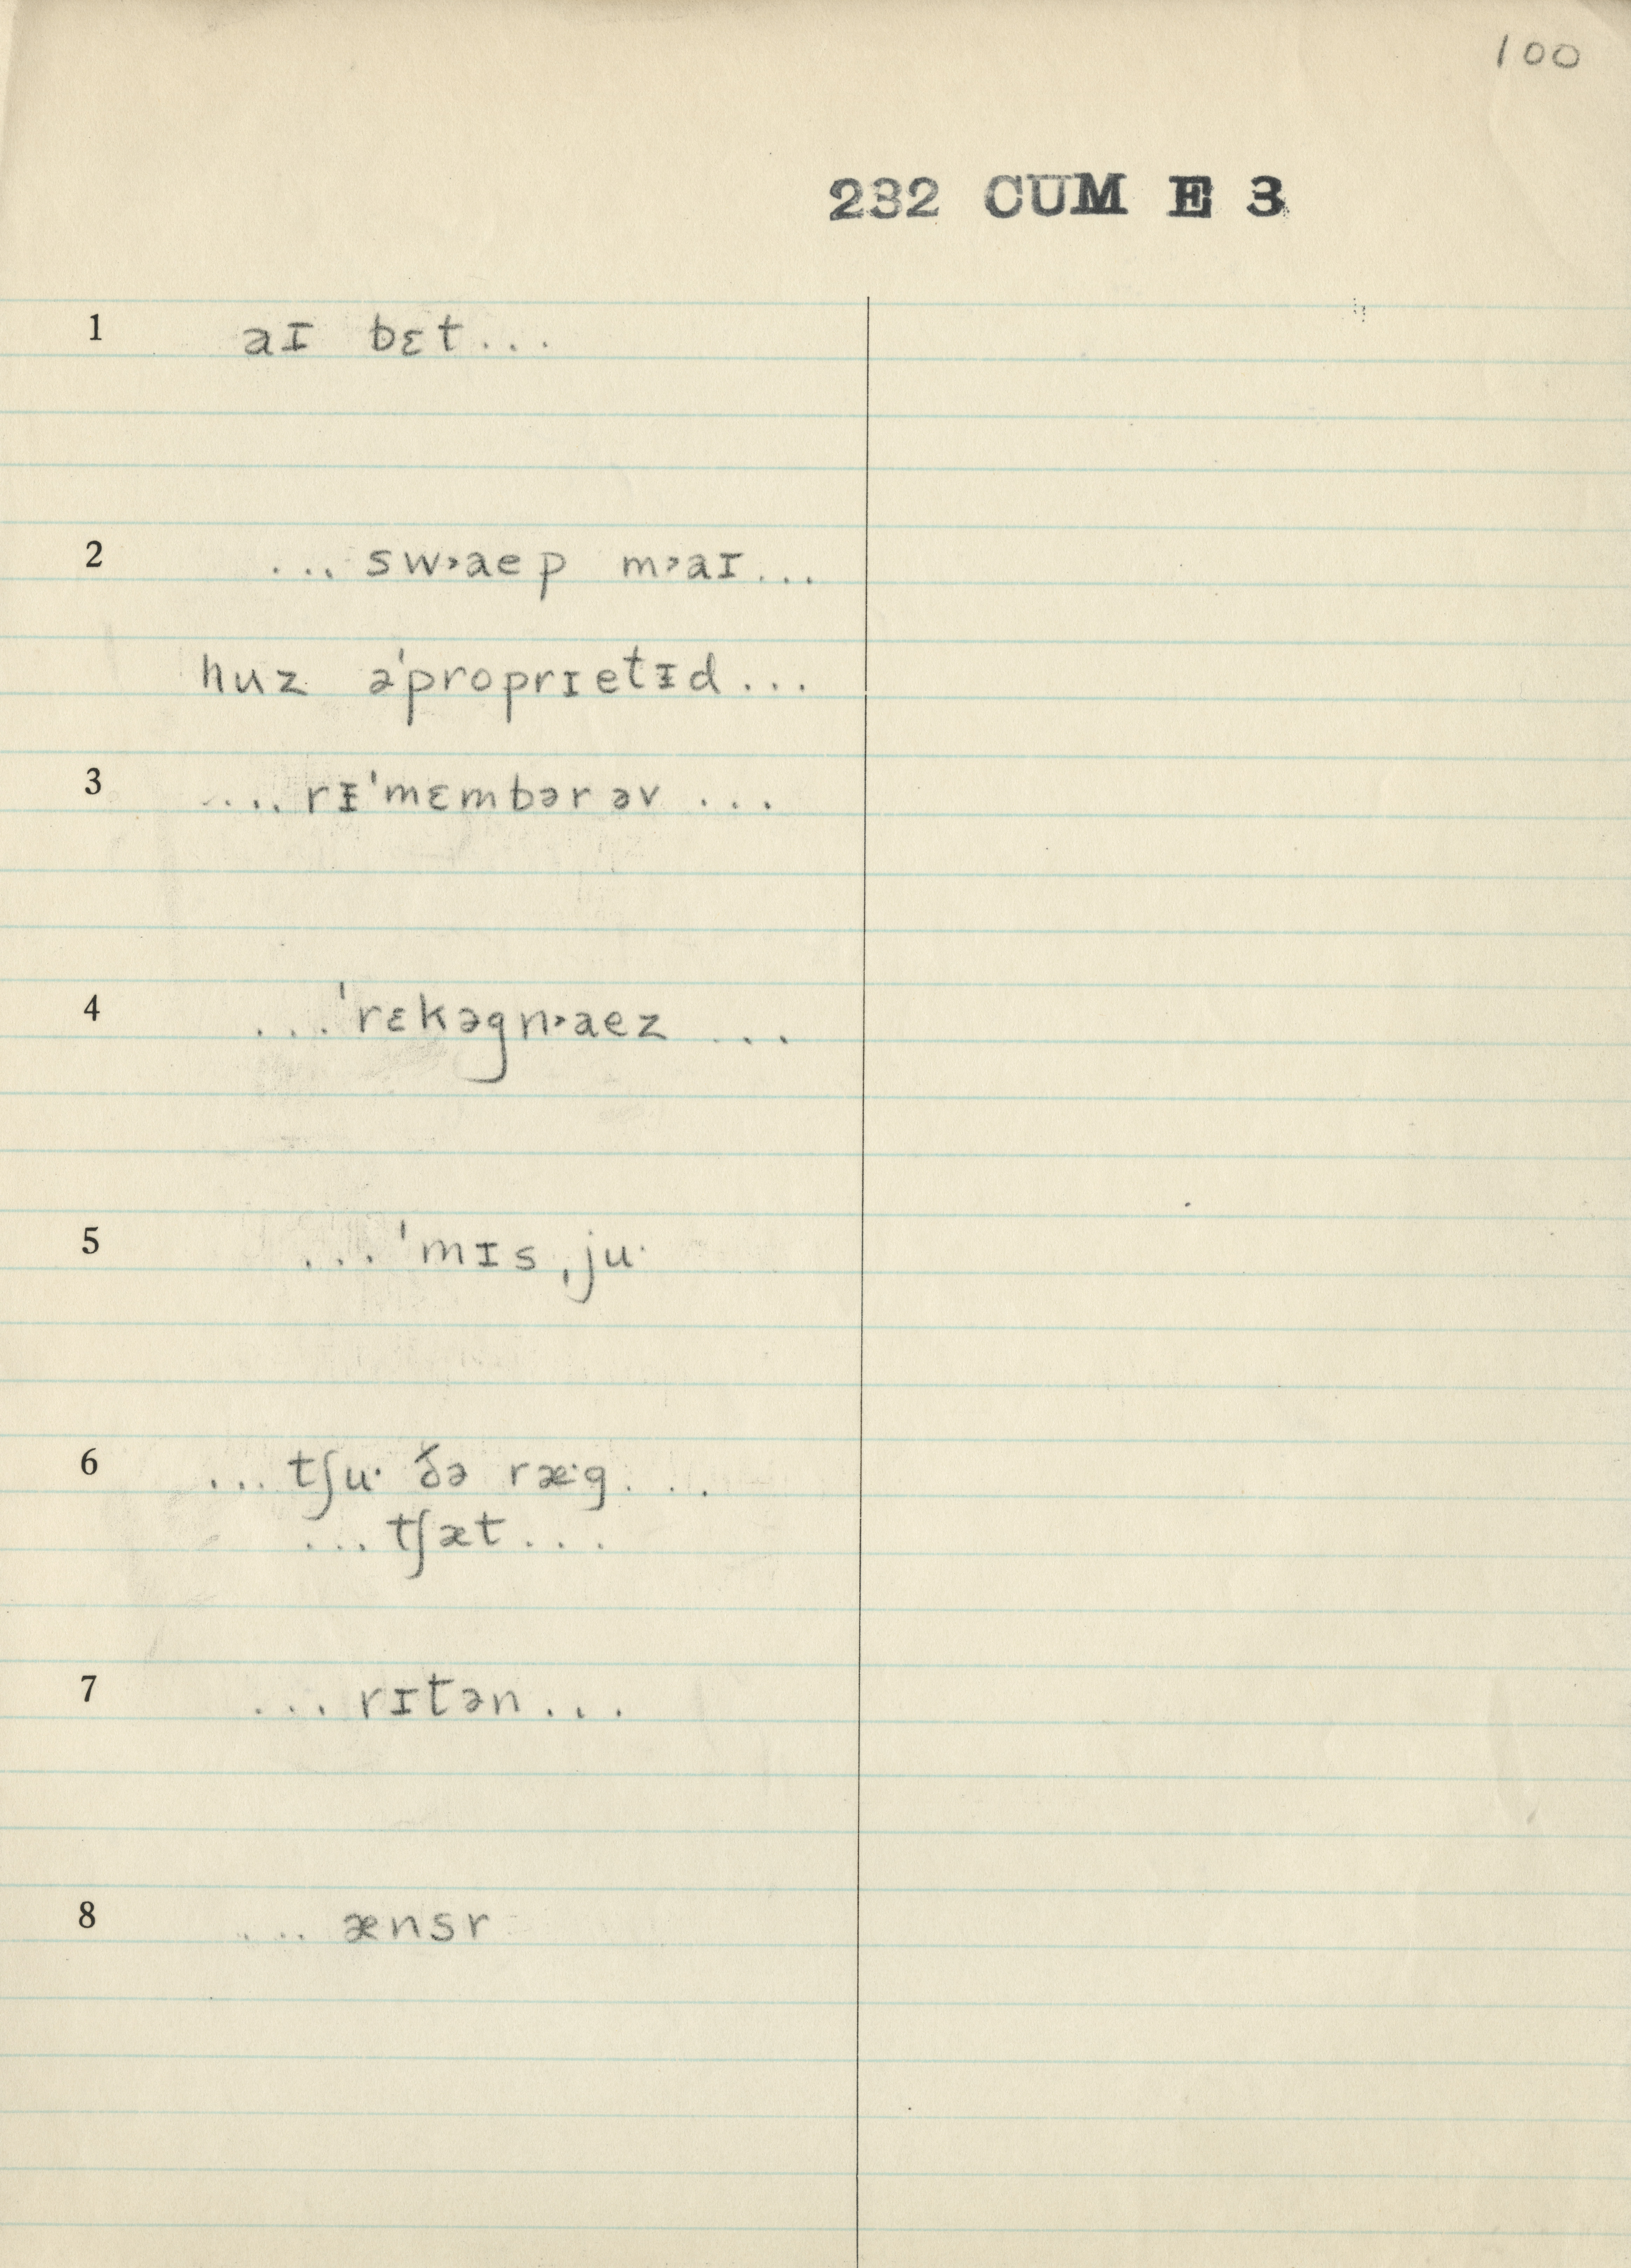 100
232 CUM E 3
1 aɪ bɛt...
2 ... sw˃aep m˃aɪ...
huz əˈproprɪetɪ̵d...
3 ... rɪ̵ˈmɛmbər əv ...
4 ...ˈrɛkəgn˃aez ...
5 ... ˈmɪs ˌju·
6 ... tʃu· ðə ræ·g...
... tʃæt...
7 ... rɪtən...
8 ... ænsr